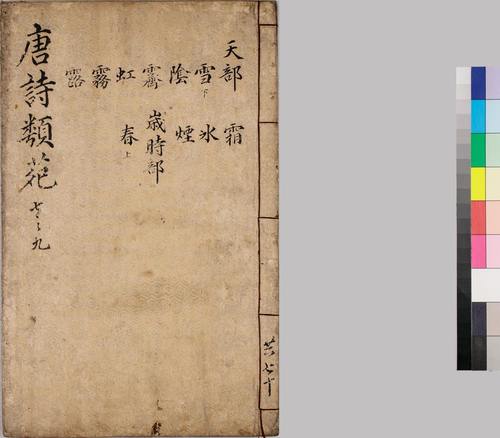 天部 霜
雪下 氷
陰 煙
霽 歲時部
虹 春上
霧
露
唐詩類苑 七之九
共七十